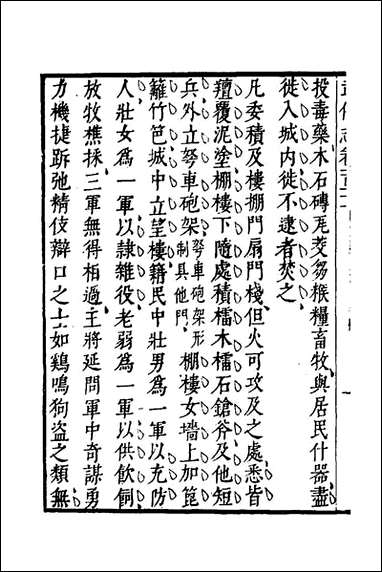 武備志卷百十一
投毒藥木石磚瓦茭芻糗糧畜牧與居民什器盡
徙入城内徙不逮者焚之
凡委積及樓棚門扇門棧但火可攻及之處悉皆
氊覆泥塗棚樓下隨處積檑木檑石鎗斧及他短
兵外立弩車砲架弩車砲架形制具他門棚樓女墻上加箆
籬竹笆城中立望樓籍民中壯男為一軍以充防
人壯女為一軍以隷雜役老弱為一軍以供飲飼
放牧樵採三軍無得相過主將延問軍中奇謀勇
力機捷跅弛精伎辯口之士如鷄鳴狗盜之類無